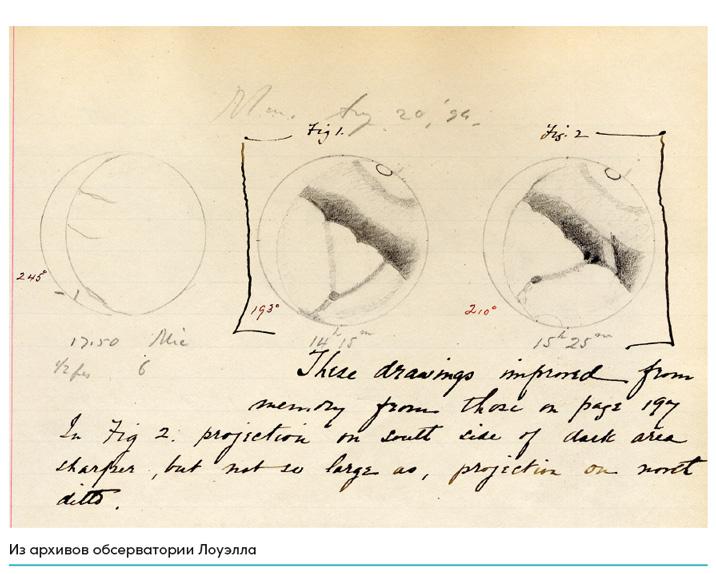 Mon. Aug. 20, '94.
Fig 1.
Fig. 2
245°
193°
210°
17.50 Mic
1/2 fes 6
14h 15m
15h 25m
These drawings improved from
memory from those on page 197
In Fig 2. projection on south side of dark area
sharper, but not so large as, projection on north
ditto.
Из архивов обсерватории Лоуэлла